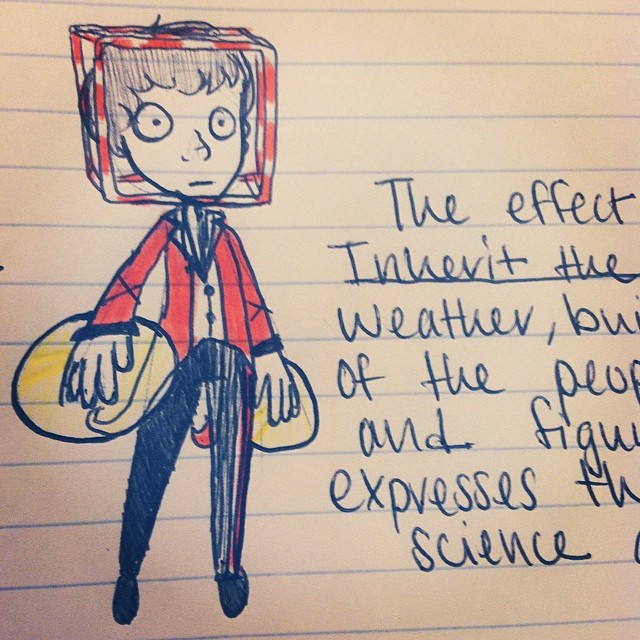 The effect
Inherit the
weather, bui
of the peop
and figu
expresses th
science